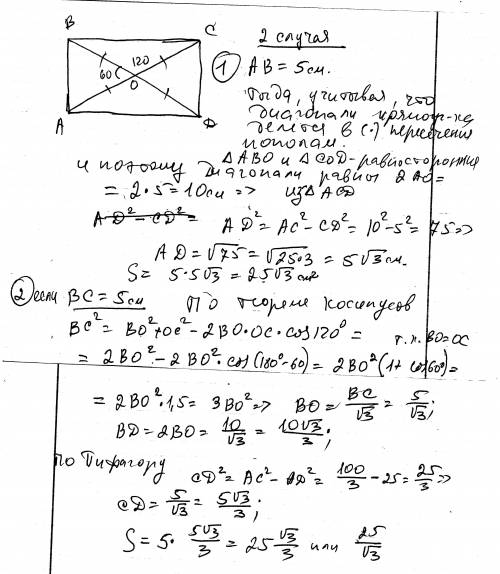 B
C
120
60
O
A
D
2 случая
① AB = 5см.
Тогда, учитывая, что
диагонали прямоуг-ка
делятся в (·) пересечения
пополам.
△ABO и △COD - равносторонние
и поэтому диагонали равны 2AO =
= 2·5 = 10см => из △ACD
AD² - CD² =
AD² = AC² - CD² = 10² - 5² = 75 =>
AD = √75 = √25·3 = 5√3 см.
S = 5·5√3 = 25√3 см²
② если BC = 5см По теореме косинусов
BC² = BO² + OC² - 2BO·OC·cos120° = т.к. BO = OC
= 2BO² - 2BO²·cos(180° - 60) = 2BO²(1 + cos60°) =
= 2BO²·1,5 = 3BO² => BO = BC/√3 = 5/√3;
BD = 2BO = 10/√3 = 10√3/3;
по Пифагору
CD² = AC² - AD² = 100/3 - 25 = 25/3 =>
CD = 5/√3 = 5√3/3;
S = 5· 5√3/3 = 25 √3/3 или 25/√3